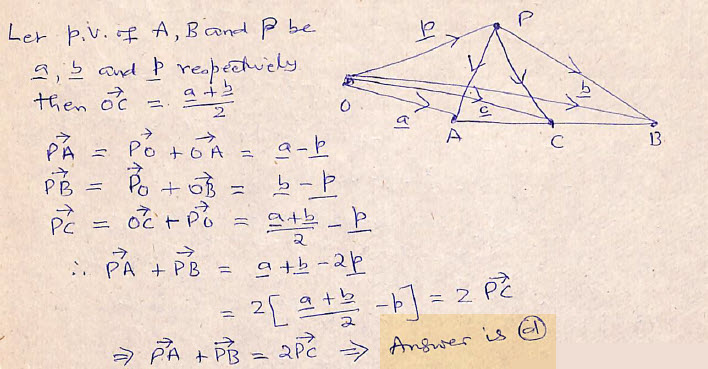 Let p.v. of A, B and P be
a, b and p respectively
then OC⃗ = (a + b)/2
PA⃗ = PO⃗ + OA⃗ = a - p
PB⃗ = PO⃗ + OB⃗ = b - p
PC⃗ = OC⃗ + PO⃗ = (a+b)/2 - p
∴ PA⃗ + PB⃗ = a + b - 2p
= 2[(a + b)/2 - p] = 2 PC⃗
⇒ PA⃗ + PB⃗ = 2PC⃗ ⇒ Answer is (d)
P
p
b
O
a
c
A
C
B